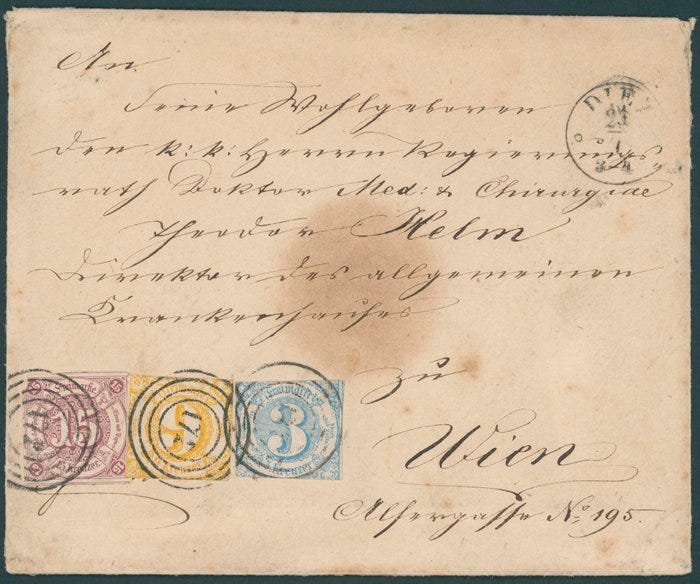 An
Seine Wohlgeboren
den k: k: Herrn Regierungs-
rath Doktor Med: & Chirurgiae
Theodor Helm
Direktor des allgemeinen
Krankenhauses
zu
Wien
Alsergasse No 195.
DIEZ
21
1
3-4
15 15
Kreuzer
3
Kreuzer